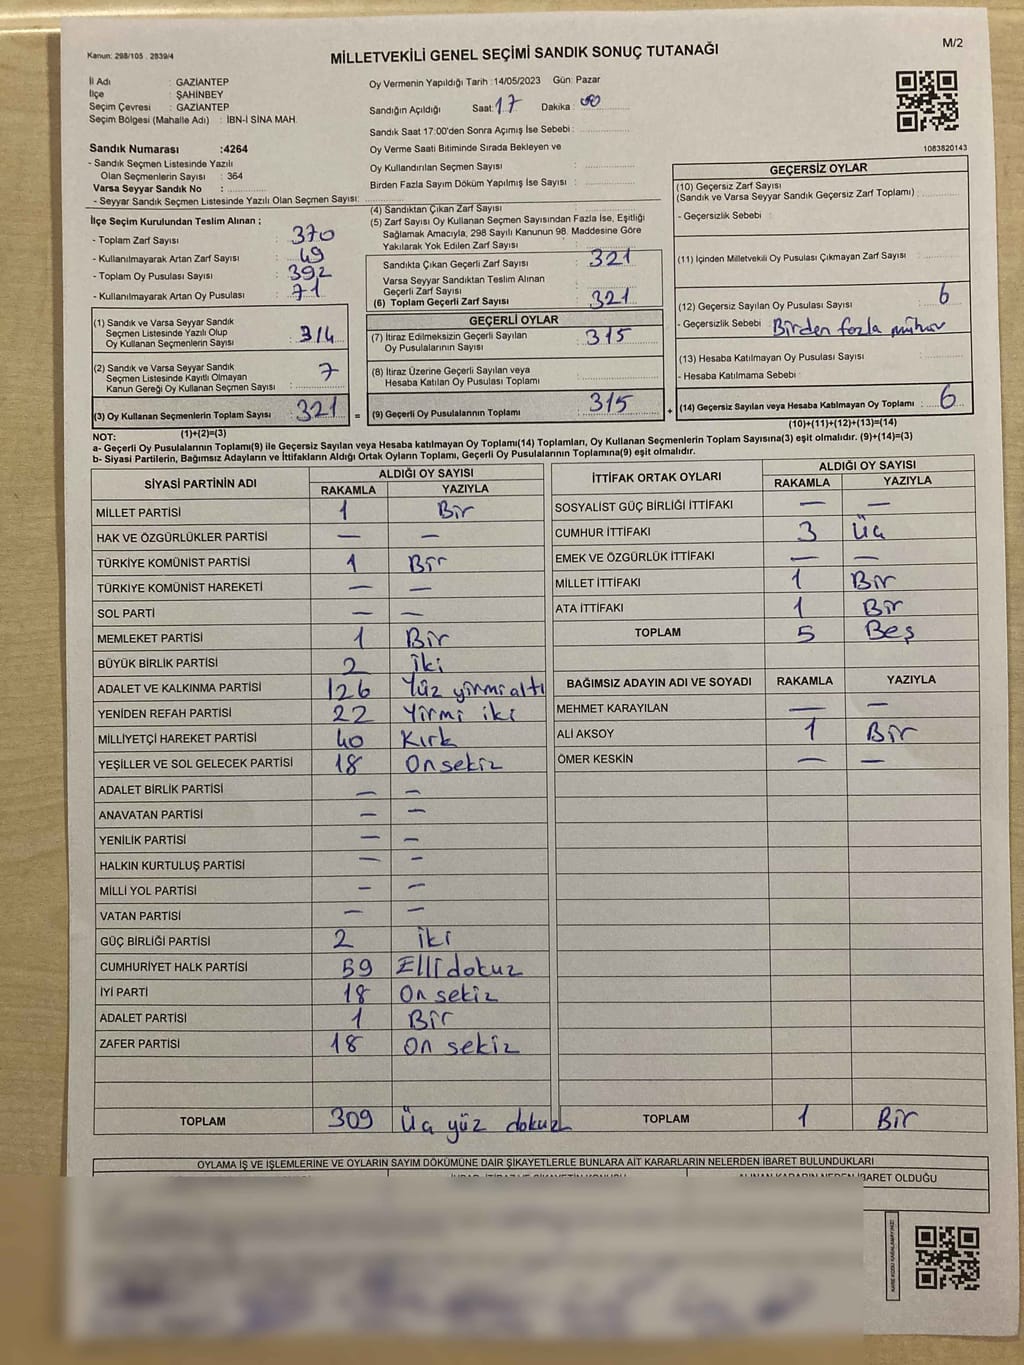 Kanun: 298/105 . 2839/4
MİLLETVEKİLİ GENEL SEÇİMİ SANDIK SONUÇ TUTANAĞI
M/2
İl Adı : GAZİANTEP
İlçe : ŞAHİNBEY
Seçim Çevresi : GAZİANTEP
Seçim Bölgesi (Mahalle Adı) : İBN-İ SİNA MAH.
Oy Vermenin Yapıldığı Tarih :14/05/2023 Gün: Pazar
Sandığın Açıldığı Saat: 17 Dakika : 00
Sandık Saat 17:00'den Sonra Açımış İse Sebebi :
Oy Verme Saati Bitiminde Sırada Bekleyen ve
Oy Kullandırılan Seçmen Sayısı :
Birden Fazla Sayım Döküm Yapılmış İse Sayısı :
1083820143
Sandık Numarası :4264
- Sandık Seçmen Listesinde Yazılı
Olan Seçmenlerin Sayısı : 364
Varsa Seyyar Sandık No :
- Seyyar Sandık Seçmen Listesinde Yazılı Olan Seçmen Sayısı:
İlçe Seçim Kurulundan Teslim Alınan ;
- Toplam Zarf Sayısı : 370
- Kullanılmayarak Artan Zarf Sayısı : 49
- Toplam Oy Pusulası Sayısı : 392
- Kullanılmayarak Artan Oy Pusulası : 71
(1) Sandık ve Varsa Seyyar Sandık
Seçmen Listesinde Yazılı Olup
Oy Kullanan Seçmenlerin Sayısı : 314
(2) Sandık ve Varsa Seyyar Sandık
Seçmen Listesinde Kayıtlı Olmayan
Kanun Gereği Oy Kullanan Seçmen Sayısı : 7
(3) Oy Kullanan Seçmenlerin Toplam Sayısı : 321 =
(1)+(2)=(3)
(4) Sandıktan Çıkan Zarf Sayısı :
(5) Zarf Sayısı Oy Kullanan Seçmen Sayısından Fazla İse, Eşitliği
Sağlamak Amacıyla, 298 Sayılı Kanunun 98. Maddesine Göre
Yakılarak Yok Edilen Zarf Sayısı :
Sandıkta Çıkan Geçerli Zarf Sayısı : 321
Varsa Seyyar Sandıktan Teslim Alınan
Geçerli Zarf Sayısı :
(6) Toplam Geçerli Zarf Sayısı : 321
GEÇERLİ OYLAR
(7) İtiraz Edilmeksizin Geçerli Sayılan
Oy Pusulalarının Sayısı : 315
(8) İtiraz Üzerine Geçerli Sayılan veya
Hesaba Katılan Oy Pusulası Toplamı :
(9) Geçerli Oy Pusulalarının Toplamı : 315 +
GEÇERSİZ OYLAR
(10) Geçersiz Zarf Sayısı
(Sandık ve Varsa Seyyar Sandık Geçersiz Zarf Toplamı) :
- Geçersizlik Sebebi :
(11) İçinden Milletvekili Oy Pusulası Çıkmayan Zarf Sayısı :
(12) Geçersiz Sayılan Oy Pusulası Sayısı : 6
- Geçersizlik Sebebi : Birden fazla mühür
(13) Hesaba Katılmayan Oy Pusulası Sayısı :
- Hesaba Katılmama Sebebi :
(14) Geçersiz Sayılan veya Hesaba Katılmayan Oy Toplamı : 6
(10)+(11)+(12)+(13)=(14)
NOT:
a- Geçerli Oy Pusulalarının Toplamı(9) ile Geçersiz Sayılan veya Hesaba katılmayan Oy Toplamı(14) Toplamları, Oy Kullanan Seçmenlerin Toplam Sayısına(3) eşit olmalıdır. (9)+(14)=(3)
b- Siyasi Partilerin, Bağımsız Adayların ve İttifakların Aldığı Ortak Oyların Toplamı, Geçerli Oy Pusulalarının Toplamına(9) eşit olmalıdır.
SİYASİ PARTİNİN ADI ALDIĞI OY SAYISI
RAKAMLA YAZIYLA
MİLLET PARTİSİ 1 Bir
HAK VE ÖZGÜRLÜKLER PARTİSİ — —
TÜRKİYE KOMÜNİST PARTİSİ 1 Bir
TÜRKİYE KOMÜNİST HAREKETİ — —
SOL PARTİ — —
MEMLEKET PARTİSİ 1 Bir
BÜYÜK BİRLİK PARTİSİ 2 İki
ADALET VE KALKINMA PARTİSİ 126 Yüz yirmi altı
YENİDEN REFAH PARTİSİ 22 Yirmi iki
MİLLİYETÇİ HAREKET PARTİSİ 40 Kırk
YEŞİLLER VE SOL GELECEK PARTİSİ 18 Onsekiz
ADALET BİRLİK PARTİSİ — —
ANAVATAN PARTİSİ — —
YENİLİK PARTİSİ — —
HALKIN KURTULUŞ PARTİSİ — —
MİLLİ YOL PARTİSİ — —
VATAN PARTİSİ — —
GÜÇ BİRLİĞİ PARTİSİ 2 İki
CUMHURİYET HALK PARTİSİ 59 Elli dokuz
İYİ PARTİ 18 On sekiz
ADALET PARTİSİ 1 Bir
ZAFER PARTİSİ 18 On sekiz
TOPLAM 309 Üç yüz dokuz
İTTİFAK ORTAK OYLARI ALDIĞI OY SAYISI
RAKAMLA YAZIYLA
SOSYALİST GÜÇ BİRLİĞİ İTTİFAKI — —
CUMHUR İTTİFAKI 3 Üç
EMEK VE ÖZGÜRLÜK İTTİFAKI — —
MİLLET İTTİFAKI 1 Bir
ATA İTTİFAKI 1 Bir
TOPLAM 5 Beş
BAĞIMSIZ ADAYIN ADI VE SOYADI RAKAMLA YAZIYLA
MEHMET KARAYILAN — —
ALİ AKSOY 1 Bir
ÖMER KESKİN — —
TOPLAM 1 Bir
OYLAMA İŞ VE İŞLEMLERİNE VE OYLARIN SAYIM DÖKÜMÜNE DAİR ŞİKAYETLERLE BUNLARA AİT KARARLARIN NELERDEN İBARET BULUNDUKLARI
İBARET OLDUĞU
KARE KODU KARALAMAYINIZ!